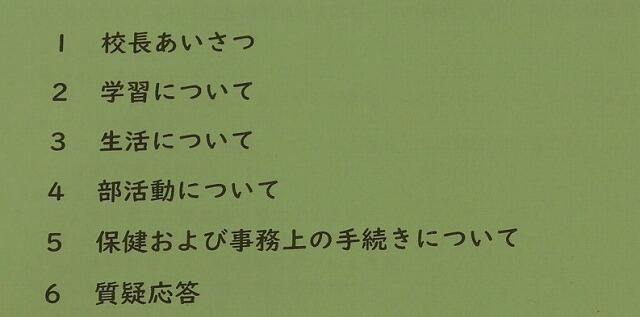 1 校長あいさつ
2 学習について
3 生活について
4 部活動について
5 保健および事務上の手続きについて
6 質疑応答